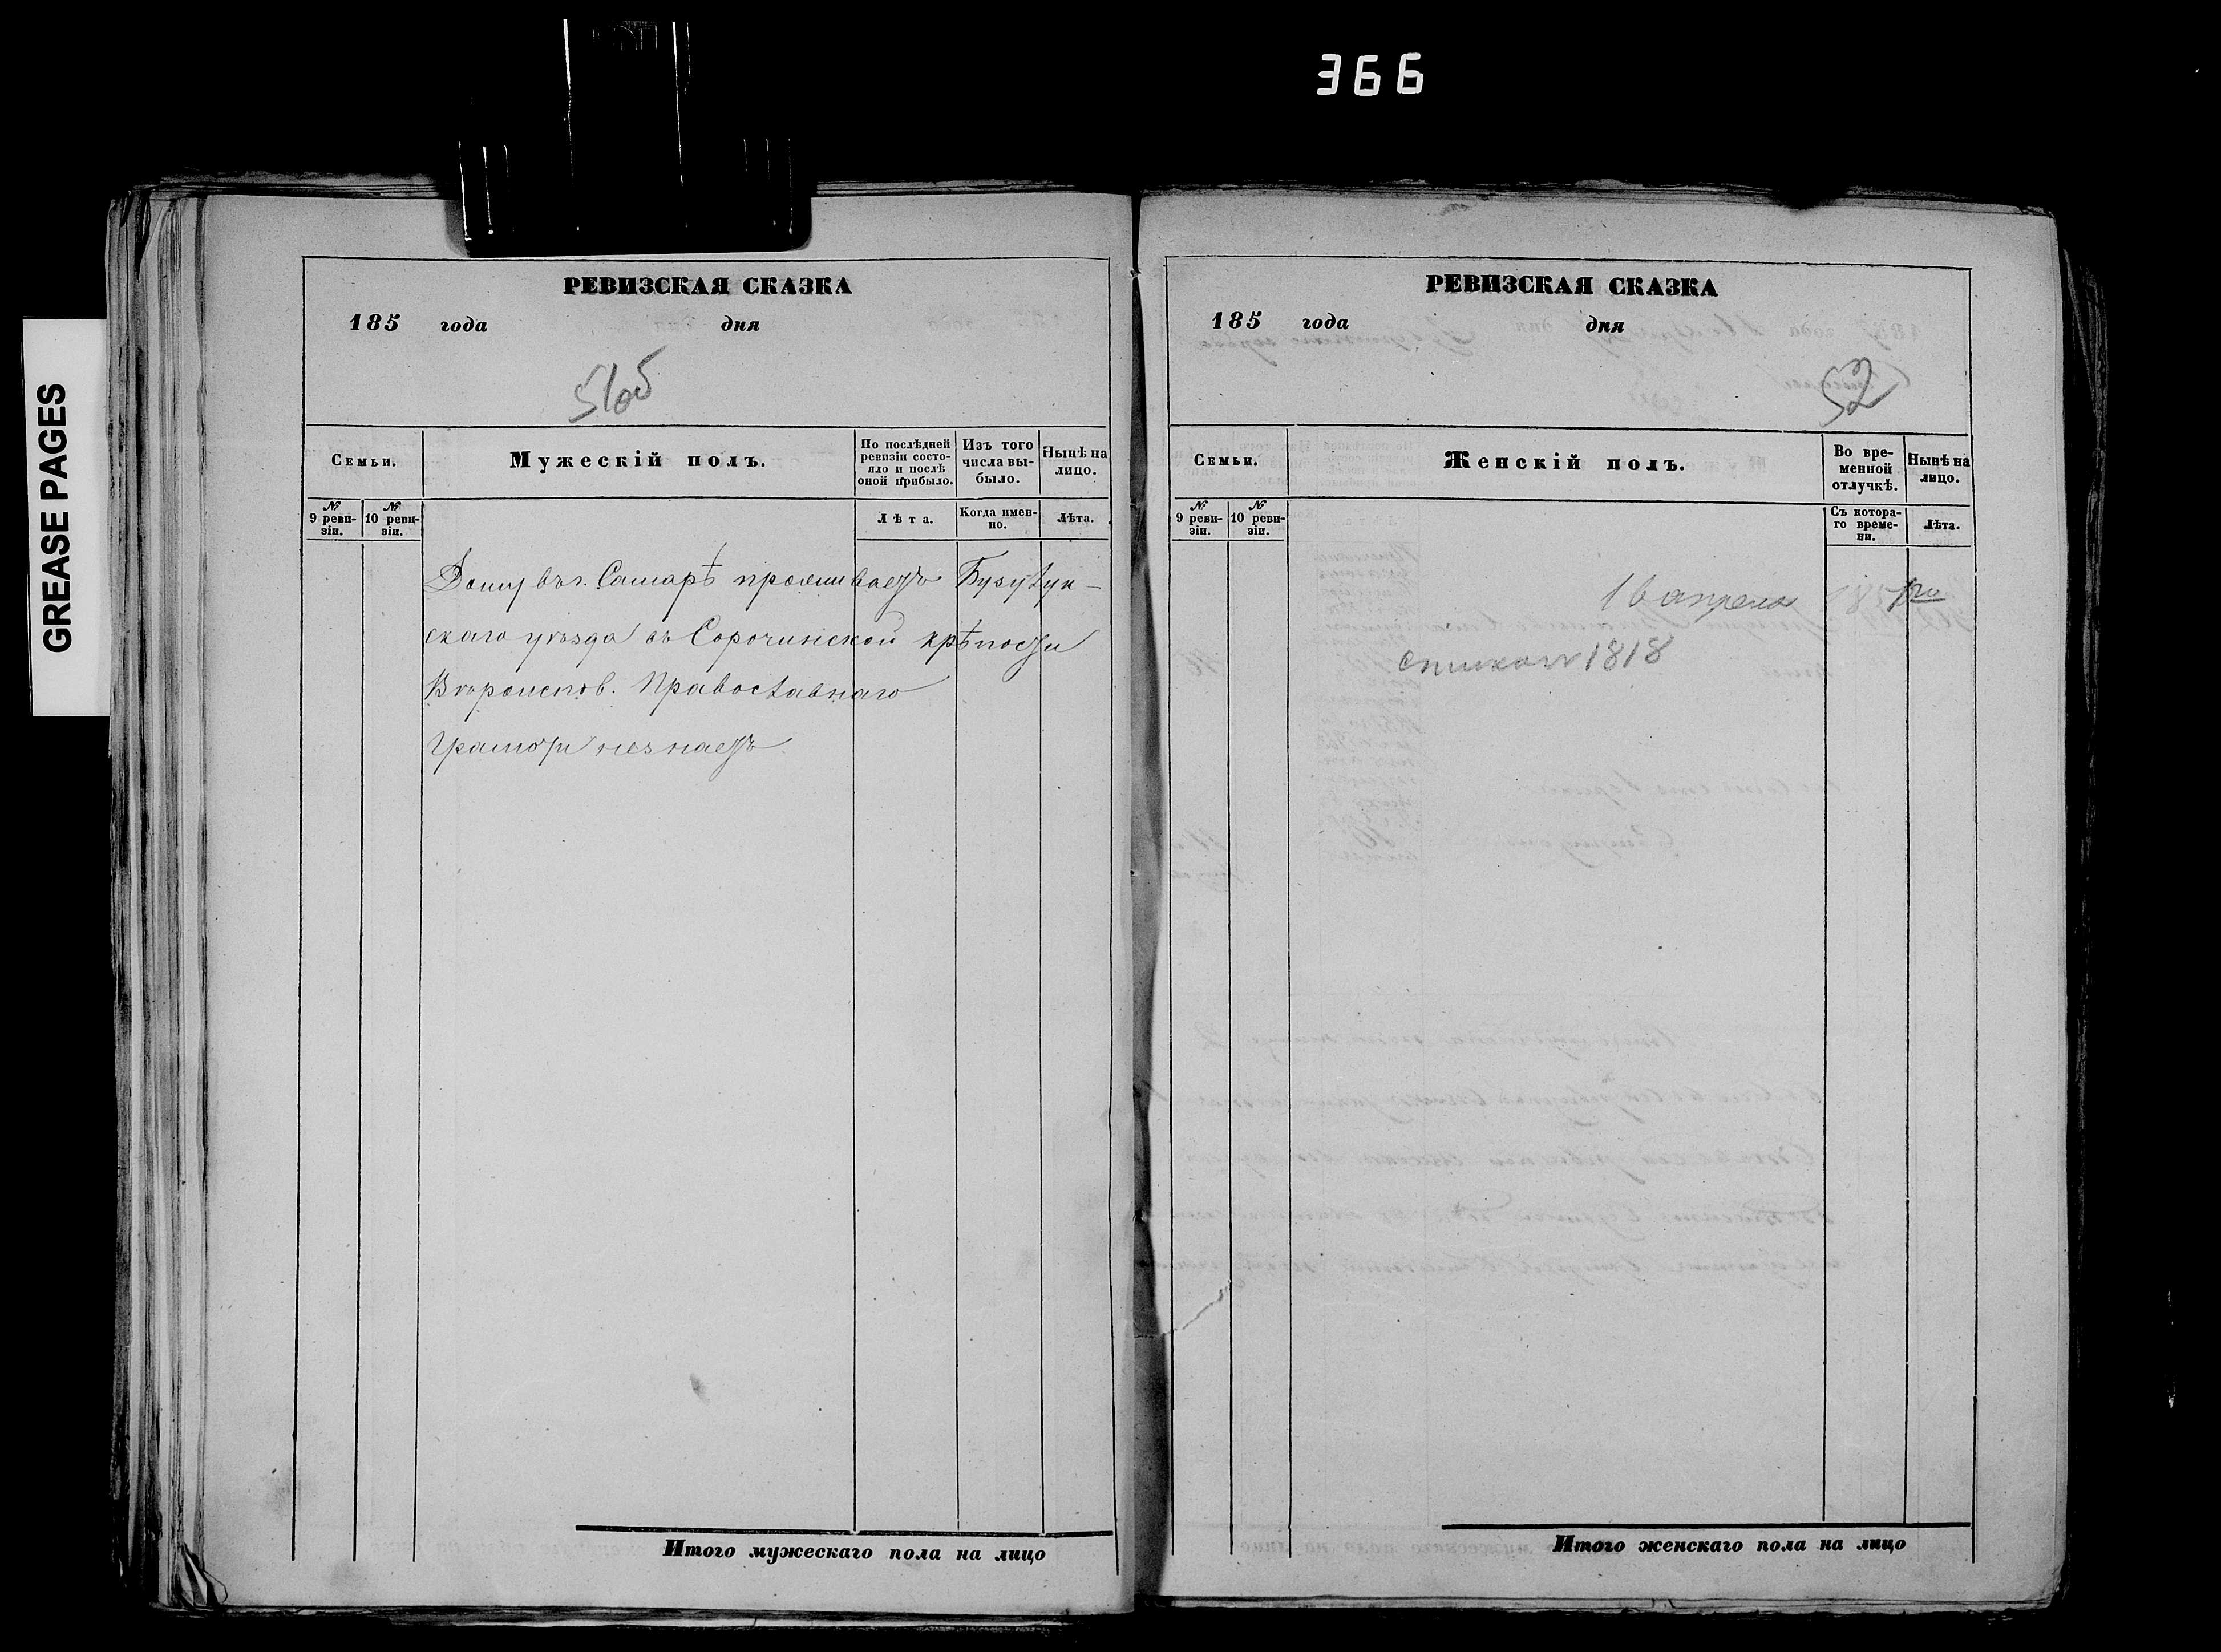 366
GREASE PAGES
РЕВИЗСКАЯ СКАЗКА
185 года дня
51об
Семьи.
Мужескій полъ.
По послѣдней ревизіи состояло и послѣ оной прибыло.
Изъ того числа выбыло.
Нынѣ на лицо.
№ 9 ревизіи.
№ 10 ревизіи.
Лѣта.
Когда именно.
Лѣта.
Дому въ г. Самарѣ проживаетъ Бузулук-
скаго уѣзда въ Сорочинской крѣпости
Вѣроиспов. Православнаго
Грамоти незнаетъ
Итого мужескаго пола на лицо
РЕВИЗСКАЯ СКАЗКА
185 года дня
52
Семьи.
Женскій полъ.
Во временной отлучкѣ.
Нынѣ на лицо.
№ 9 ревизіи.
№ 10 ревизіи.
Съ котораго времени.
Лѣта.
16 апреля
1818
Итого женскаго пола на лицо